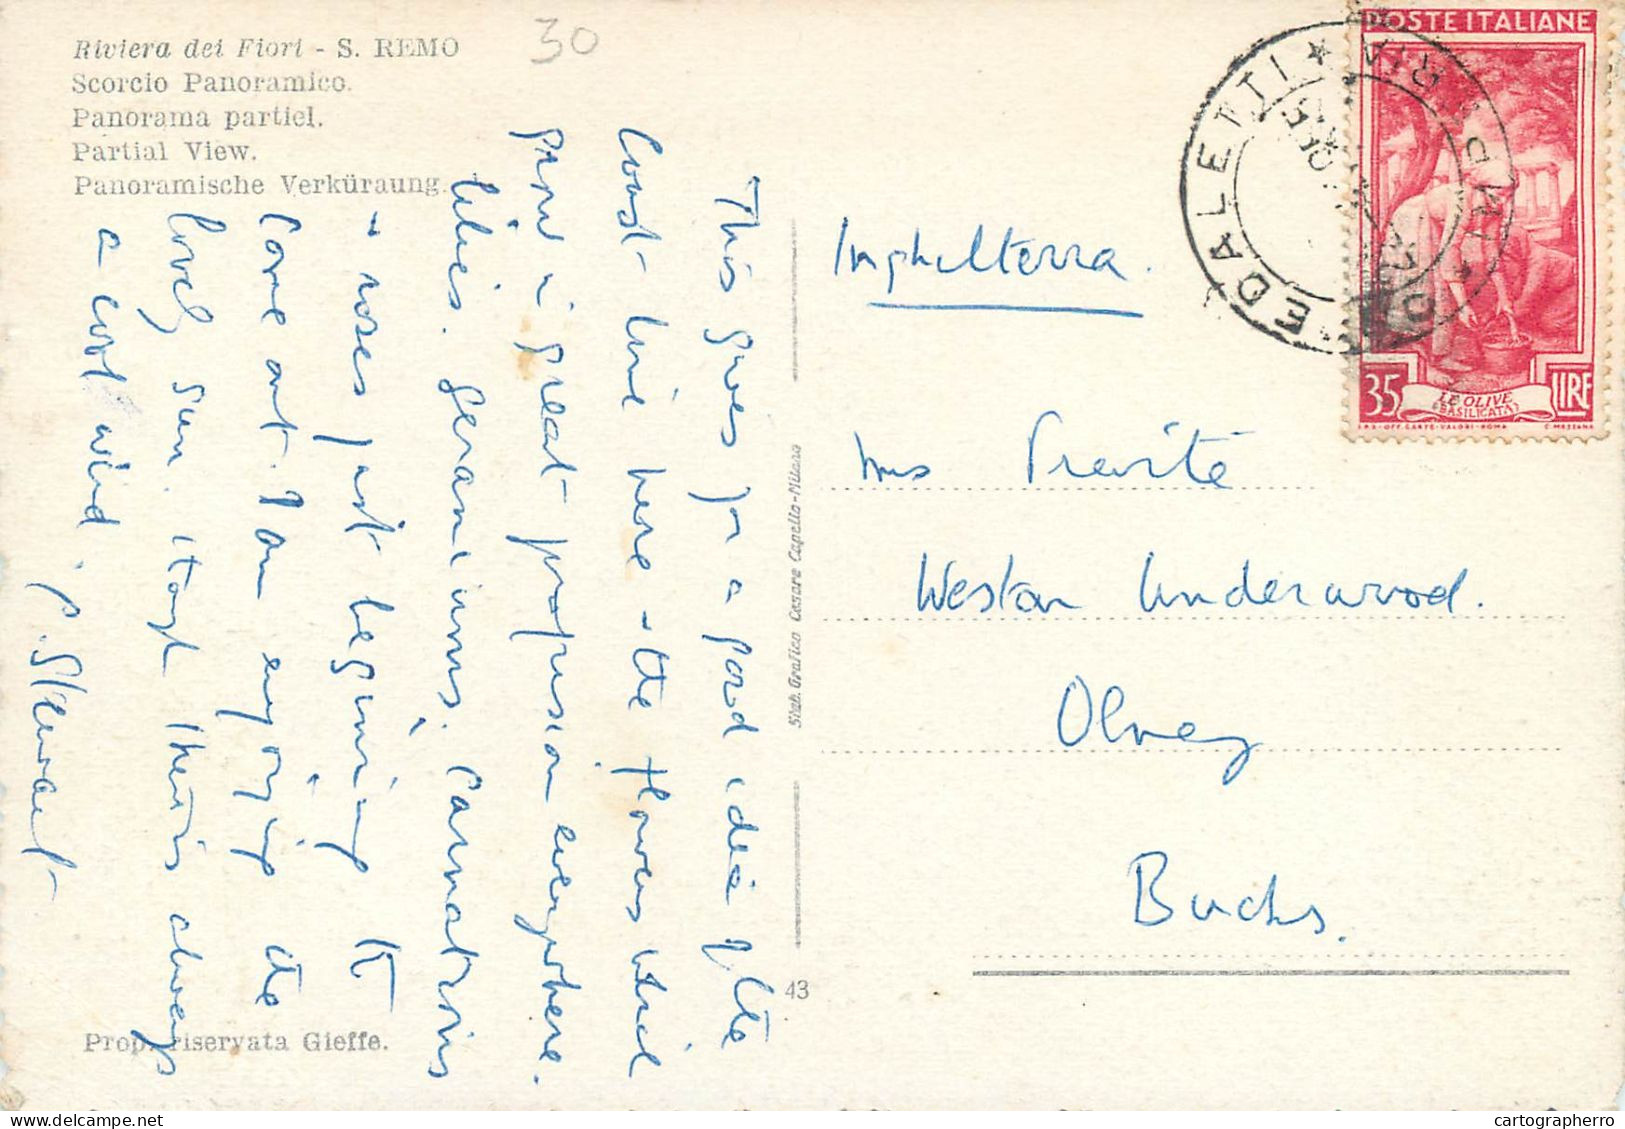 Riviera dei Fiori - S. REMO
Scorcio Panoramico.
Panorama partiel.
Partial View.
Panoramische Verküraung.
30
This gives you a good idea of the
coast line here & the flowers which
grow in great profusion everywhere.
lilies. geraniums. carnations
& roses just beginning to
come out. I am enjoying the
lovely sun, though there is always
a cool wind.
P. Stewart
Prop. riservata Gieffe.
Stab. Grafico Cesare Capello-Milano
43
Inghilterra.
Mrs Previté
Weston Underwood.
Olney
Bucks.
POSTE ITALIANE
35 LIRE
LE OLIVE
(BASILICATA)
I.P.S.-OFF. CARTE-VALORI-ROMA C. MEZZANA
OSPEDALETTI
IMPERIA
cartographerro